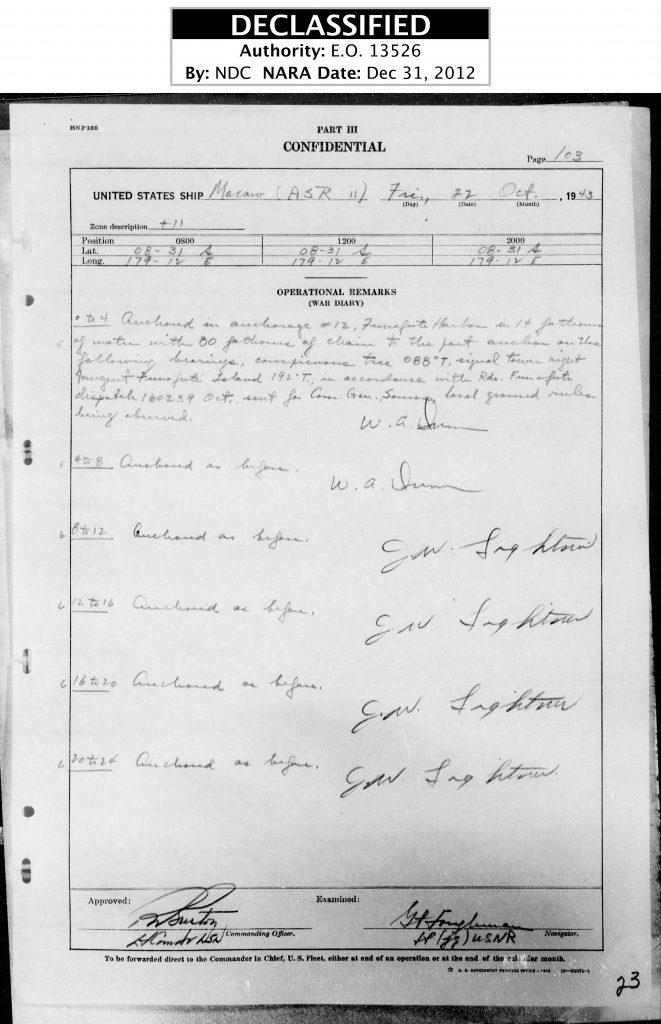 DECLASSIFIED
Authority: E.O. 13526
By: NDC NARA Date: Dec 31, 2012
HNP186
PART III
CONFIDENTIAL
Page 103
UNITED STATES SHIP Macaw (ASR 11) Fri., 22 Oct. , 1943
(Day) (Date) (Month)
Zone description +11
Position 0800 1200 2000
Lat. 08-31 S 08-31 S 08-31 S
Long. 179-12 E 179-12 E 179-12 E
OPERATIONAL REMARKS
(WAR DIARY)
0 to 4 Anchored in anchorage #12, Funafuti Harbor in 14 fathoms
5 of water with 80 fathoms of chain to the port anchor on the
following bearings, conspicuous tree 088°T, signal tower right
tangent Funafuti Island 192°T, in accordance with Rdo. Funafuti
dispatch 160239 Oct. sent for Com. Gen. local ground rules
being observed.
W. A. Dunn
5 4 to 8 Anchored as before.
W. A. Dunn
6 8 to 12 Anchored as before.
J. W.
6 12 to 16 Anchored as before.
J. W.
6 16 to 20 Anchored as before.
J. W.
6 20 to 24 Anchored as before.
J. W.
Approved: Examined:
Burton
Commanding Officer. Navigator.
Lt Comdr USN Lt (jg) USNR
To be forwarded direct to the Commander in Chief, U. S. Fleet, either at end of an operation or at the end of the calendar month.
☆ U. S. GOVERNMENT PRINTING OFFICE
23